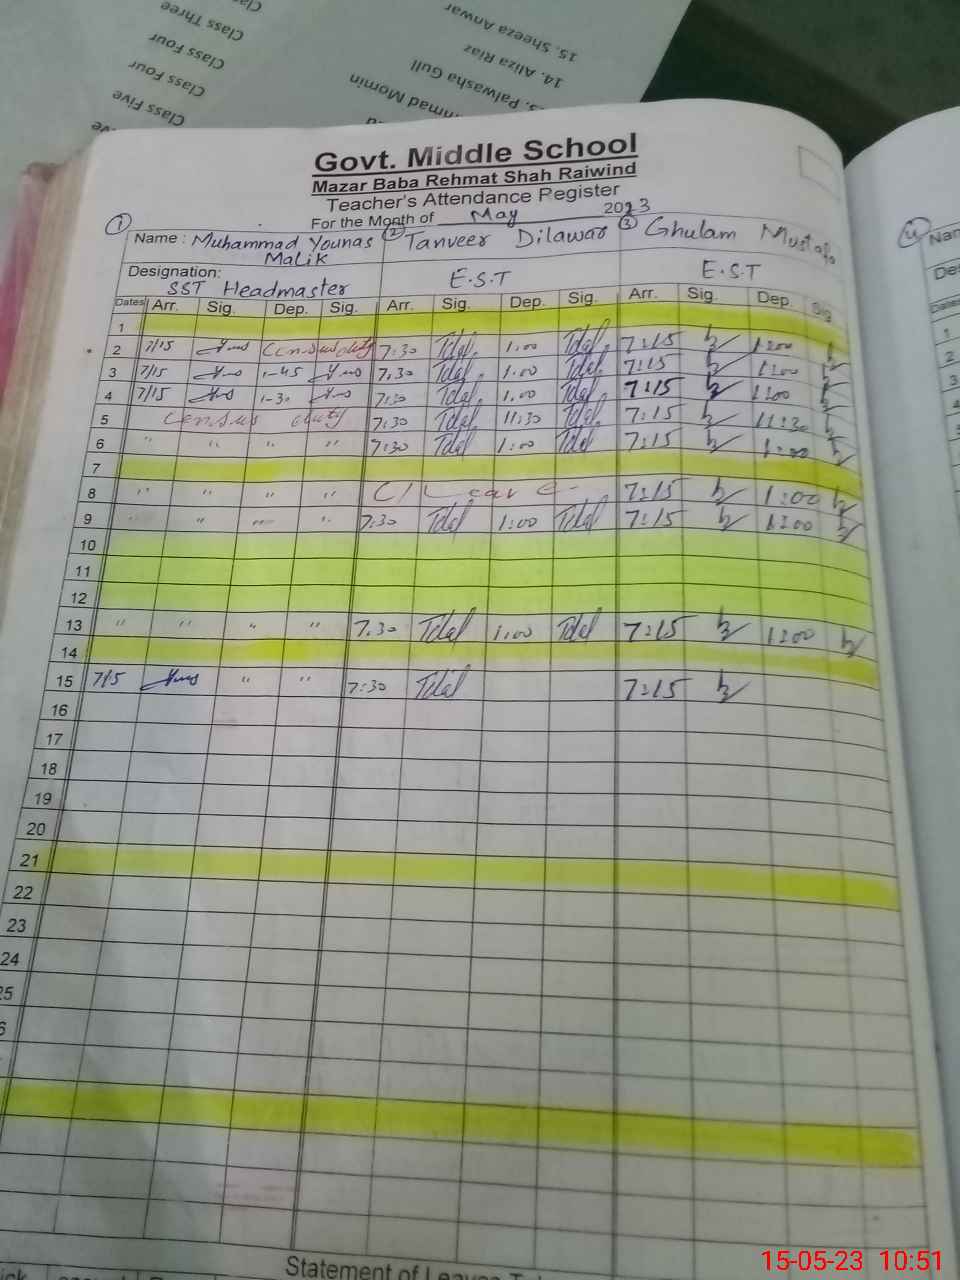 Class Three
Class Four
Class Four
Class Five
15. Sheeza Anwar
14. Aliza Riaz
Palwasha Gull
Momin
Govt. Middle School
Mazar Baba Rehmat Shah Raiwind
Teacher's Attendance Pegister
For the Month of May 2023
1 Name : Muhammad Younas Malik 2 Tanveer Dilawar 3 Ghulam Mustafa
Designation: SST Headmaster E.S.T E.S.T
Dates Arr. Sig. Dep. Sig. Arr. Sig. Dep. Sig. Arr. Sig. Dep. Sig.
1
2 7/15 Census duty 7:30 1.00 7:15 1:00
3 7/15 1-45 7.30 1.00 7:15 1:00
4 7/15 1-30 7:30 1.00 7:15 1:00
5 Census duty 7:30 11:30 7:15 11:30
6 " " " " 7:30 1:00 7:15 1:00
7
8 " " " " C/Leave 7:15 1:00
9 " " " " 7:30 1:00 7:15 1:00
10
11
12
13 " " " " 7.30 1:00 7:15 1:00
14
15 7/15 " " 7:30 7:15
16
17
18
19
20
21
22
23
24
25
4
Nan
Dates
1
2
3
4
Statement of
15-05-23 10:51